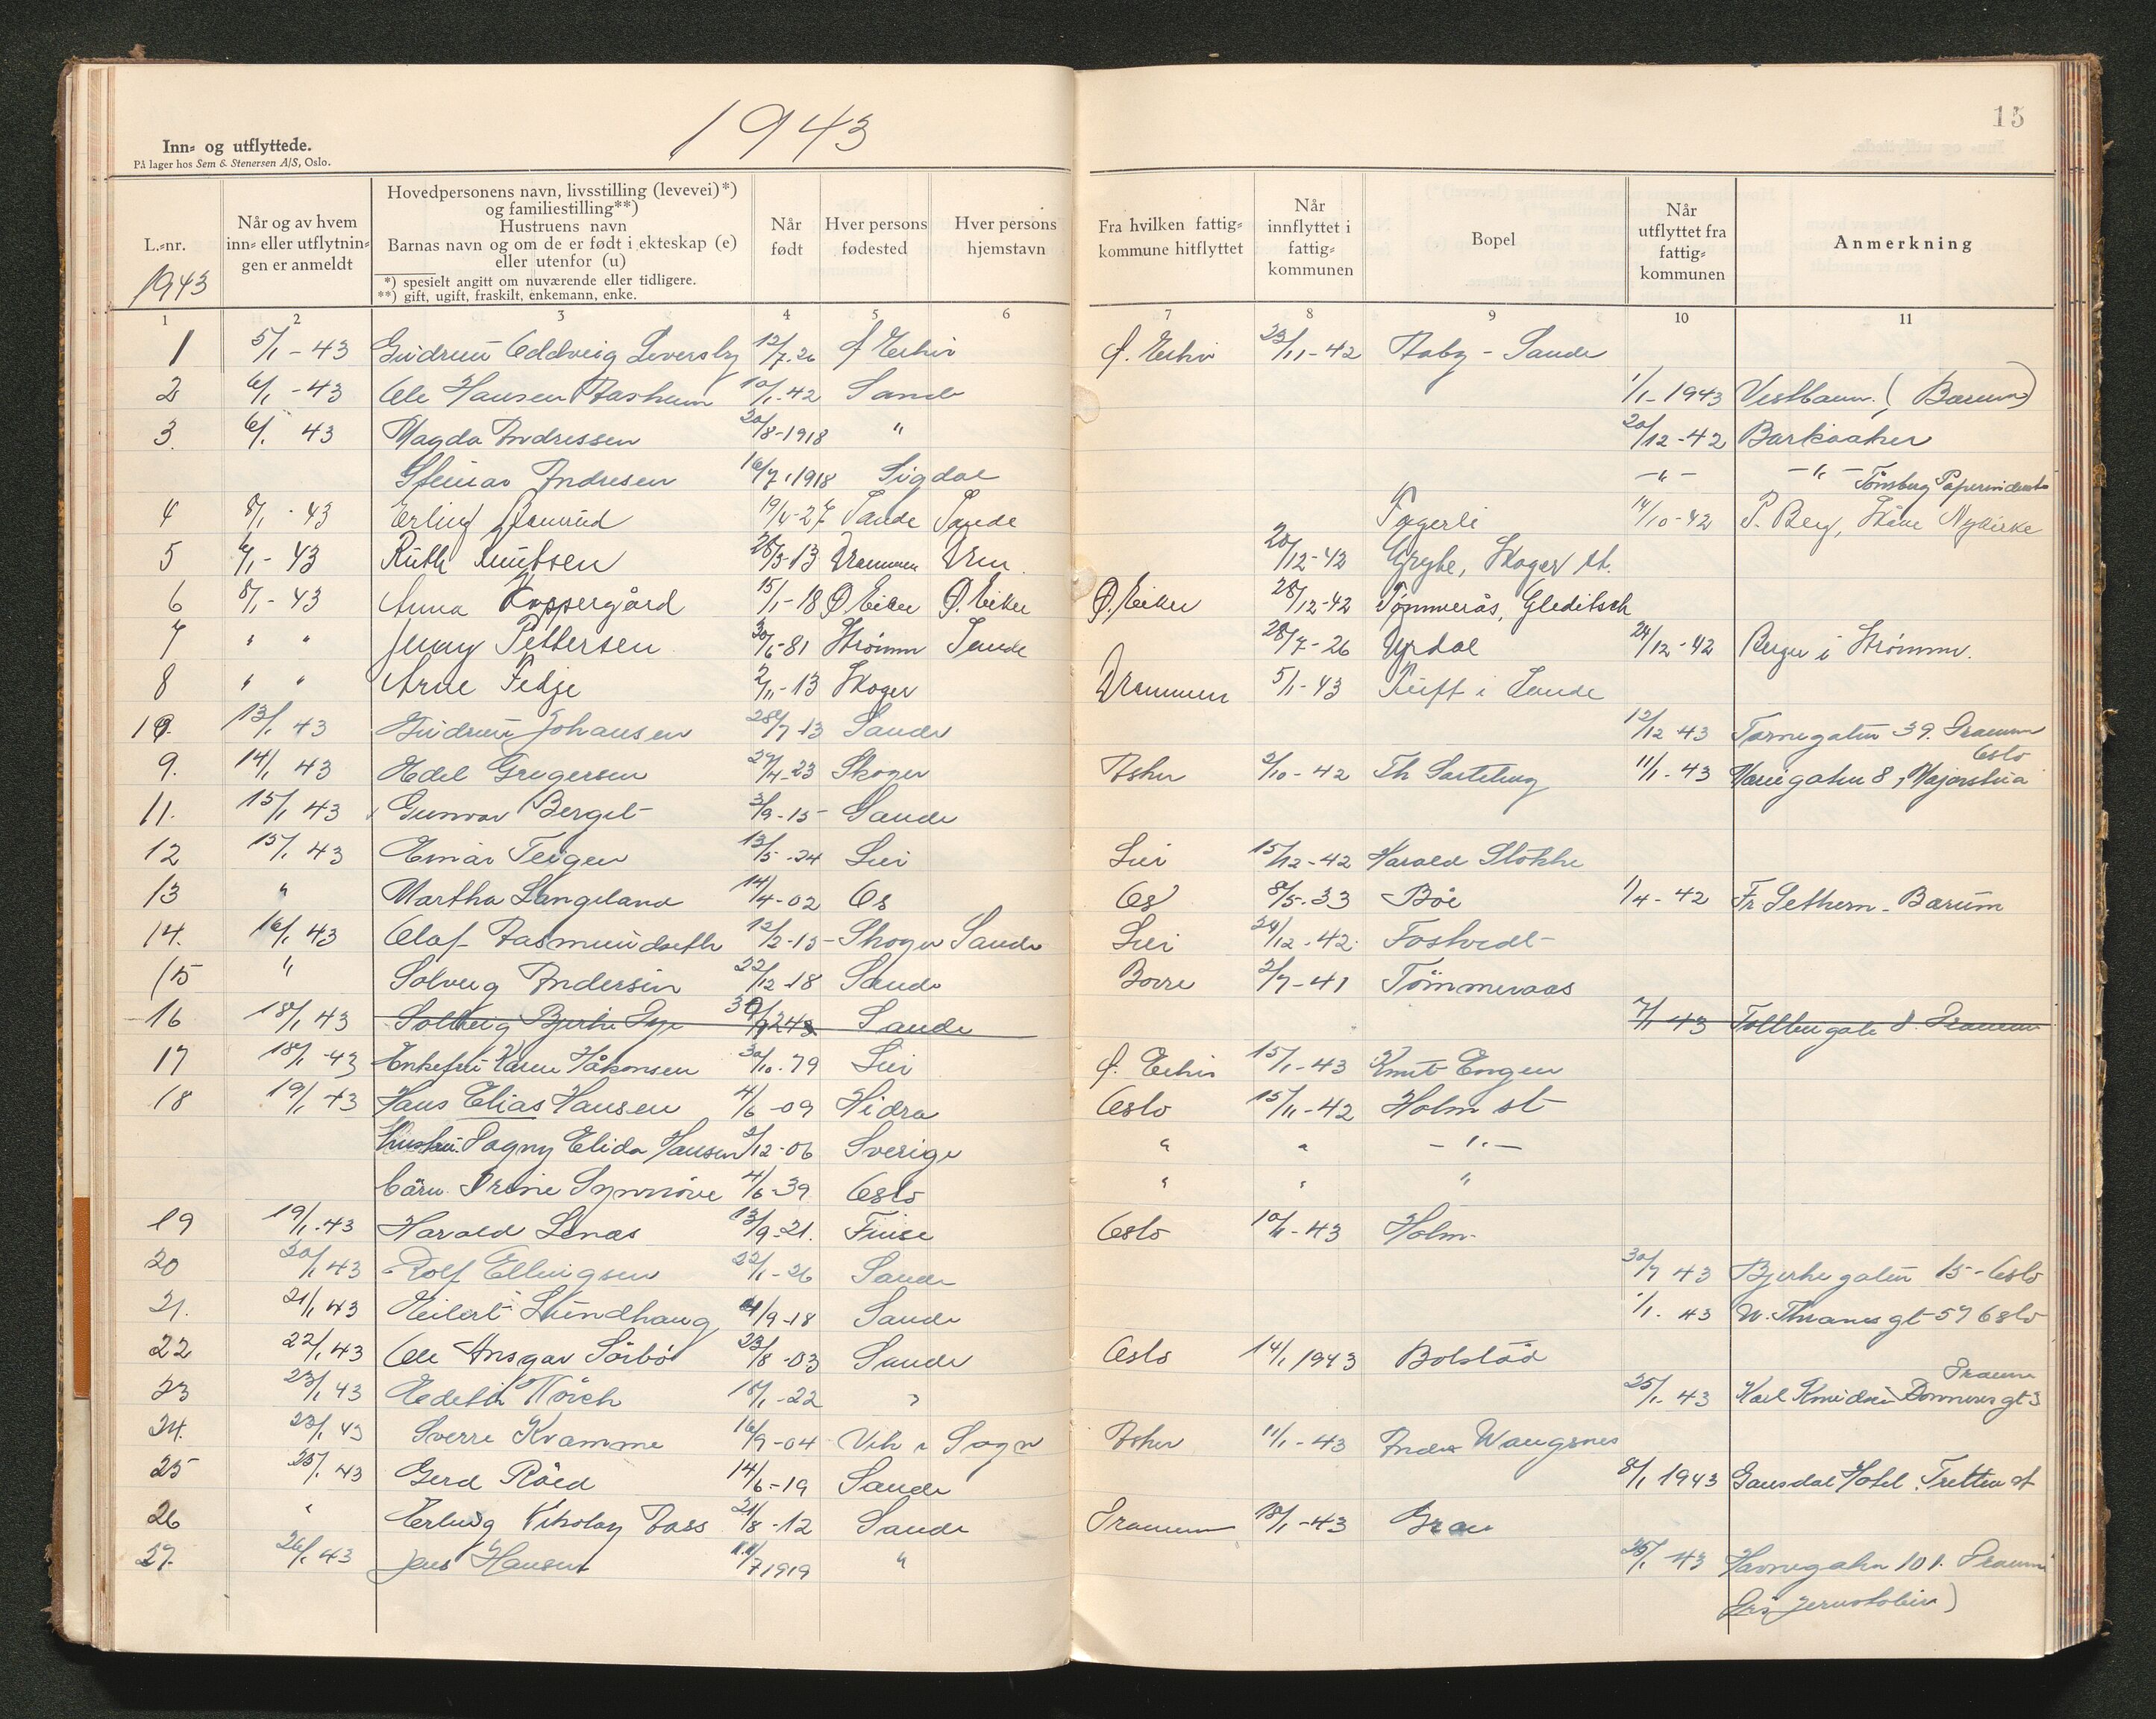 1943
15
Inn= og utflyttede.
På lager hos Sem & Stenersen A/S, Oslo.
L.=nr.
1943
Når og av hvem
inn= eller utflytnin=
gen er anmeldt
Hovedpersonens navn, livsstilling (levevei)*)
og familiestilling**)
Hustruens navn
Barnas navn og om de er født i ekteskap (e)
eller utenfor (u)
*) spesielt angitt om nuværende eller tidligere.
**) gift, ugift, fraskilt, enkemann, enke.
Når
født
Hver persons
fødested
Hver persons
hjemstavn
Fra hvilken fattig=
kommune hitflyttet
Når
innflyttet i
fattig=
kommunen
Bopel
Når
utflyttet fra
fattig=
kommunen
Anmerkning
1 2 3 4 5 6 7 8 9 10 11
1 5/1-43 Gudrun Oddveig Leversby 12/7.26 23/11-42 Raby - Sande
2 6/1-43 Ole Hansen 10/1-42 Sande 1/1-1943 (Bærum)
3. 6/1 43 Magda Andressen 20/8-1918 " 20/12-42 Barkaaker
Steinar Andresen 16/7.1918 Sigdal -"- -"- Tønsberg
4 8/1-43 Erling 19/4-27 Sande Sande Fagerli 14/10-42 P. Berg, Nykirke
5 6/1-43 Ruth Knutsen 28/3-13 Drammen Drm. 20/12-42 Grytte, Skoger st.
6 8/1-43 Anna Koppergård 15/1-18 Ø. Eiker Ø. Eiker Ø. Eiker 28/12-42 Tømmerås, Gleditsch
7 " " Jenny Pettersen 30/6-81 Strømm Sande 28/7-26 Updal 24/12-42 Berger i Strømm.
8 " " Arne Fedje 2/11-13 Skoger Drammen 5/1-43 Tuft i Sande
10. 13/1 43 Gudrun Johansen 28/7-13 Sande 12/12 43 Tornegaten 39. Dramm
9. 14/1 43 Edel Gregersen 29/4-23 Skoger Asker 2/10-42 Th 11/1-43 8, Majorstua Oslo
11. 15/1 43 Gunvor Berget 3/9-15 Sande
12 15/1 43 Einar Teigen 13/5-24 Lier Lier 15/12-42 Harald Stokke
13 " Martha Langeland 14/4-02 Os Os 8/5-33 Bøe 1/4-42 Fr. Sethern - Bærum
14. 16/1 43 Olaf Aasmundseth 12/2-15 Skoger Sande Lier 24/12-42 Fostvedt
15 " Solveig Andersen 22/12-18 Sande Borre 2/7-41 Tömmeraas
16 18/1 43 Solveig Bjerke 30/9 Sande 7/1 43 8. Dramm
17 18/1-43 Enkefru Karen Håkonsen 30/10-79 Lier 15/1-43 Knut Engen
18 19/1 43 Hans Elias Hansen 4/6-09 Hidra Oslo 15/11-42 Holm st
Hustru. Dagny Elida Hansen 2/12-06 Sverige " " -"-
barn. Irene Synnöve 4/6-39 Oslo " " "
19 19/1-43 Harald Lenæs 13/9-21. Finse Oslo 10/1-43 Holm.
20 20/1 43 Rolf Ellingsen 22/1-26 Sande 30/7 43 Bjerkegaten 15 - Oslo
21. 21/1 43 Eilert Lundhaug 4/9-18 Sande 1/1. 43 W. Thranes gt 57 Oslo
22 22/1 43 Ole Ansgar Sörbö 23/8-03 Sande Oslo 14/1 1943 Bolstad
23 23/1 43 Edith 18/1-22 " 25/1-43 Karl Knudsen gt 3 Dramm
24. 23/1 43 Sverre Kvamme 16/9-04 Vik i Sogn Asker 11/1-43 Wangsnes
25 25/1 43 Gerd Röed 14/6-19 Sande 8/1 1943 Gausdal Hotel. Tretten st
26 " Erling Nikolay Aass 21/8-12 Sande Dramm 18/1-43 Grav
27. 26/1 43 Jens Hansen 11/7 1919 " 25/1-43 Havnegaten 101. Dramm